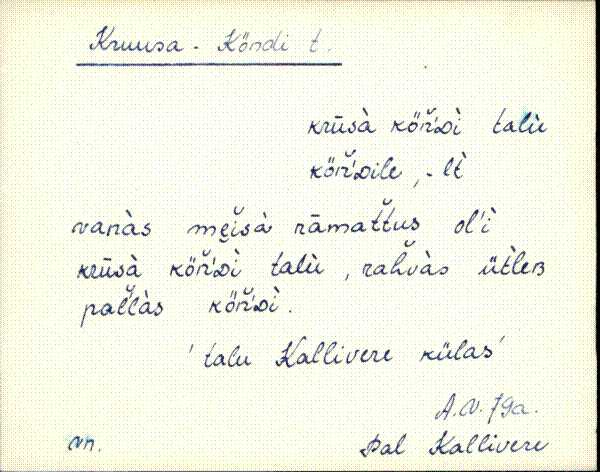 Kruusa - Köndi t.
krūsà köň'ᴅì talù
köň'ᴅile, -lt̀
vanàs mẹĭsà rāmat̆tus ol'ì
krūsà köň'ᴅì talù, rah̆vàs üt̀leʙ
pal̆làs köň'ᴅì.
'talu Kallivere külas'
A.V. 79a.
vn. Pal Kallivere